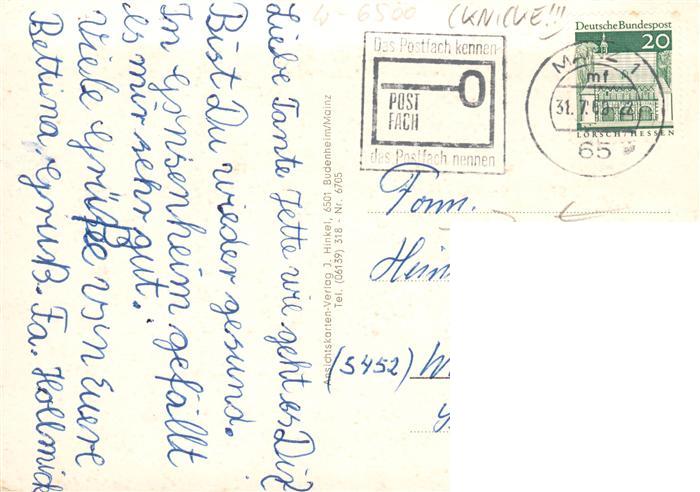 W-6500 (KNICKE!!!)
Deutsche Bundespost
20
LORSCH/HESSEN
Das Postfach kennen
POST
FACH
das Postfach nennen
MAINZ 1
mf
31.7.
65
Liebe Tante Jette wie geht es Dir?
Bist Du wieder gesund.
In Gonsenheim gefällt
es mir sehr gut.
Viele Grüße von Euere
Bettina, Gruß. Fa. Hollmick
Ansichtskarten-Verlag J. Hinkel, 6501 Budenheim/Mainz
Tel. (06139) 318 - Nr. 6705
Fam.
Hein
(5452) W